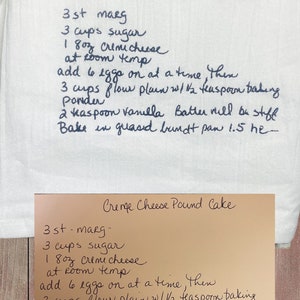 3 st marg
3 cups sugar
1 8oz cremcheese
at room temp
add 6 eggs on at a time, then
3 cups flour plain w/ 1/2 teaspoon baking
powder
2 teaspoon vanilla Batter will be stiff
Bake in greased bundt pan 1.5 hr
Creme Cheese Pound Cake
3 st - marg -
3 cups sugar
1 8oz cremcheese
at room temp
add 6 eggs on at a time, then
3 cups flour plain w/ 1/2 teaspoon baking